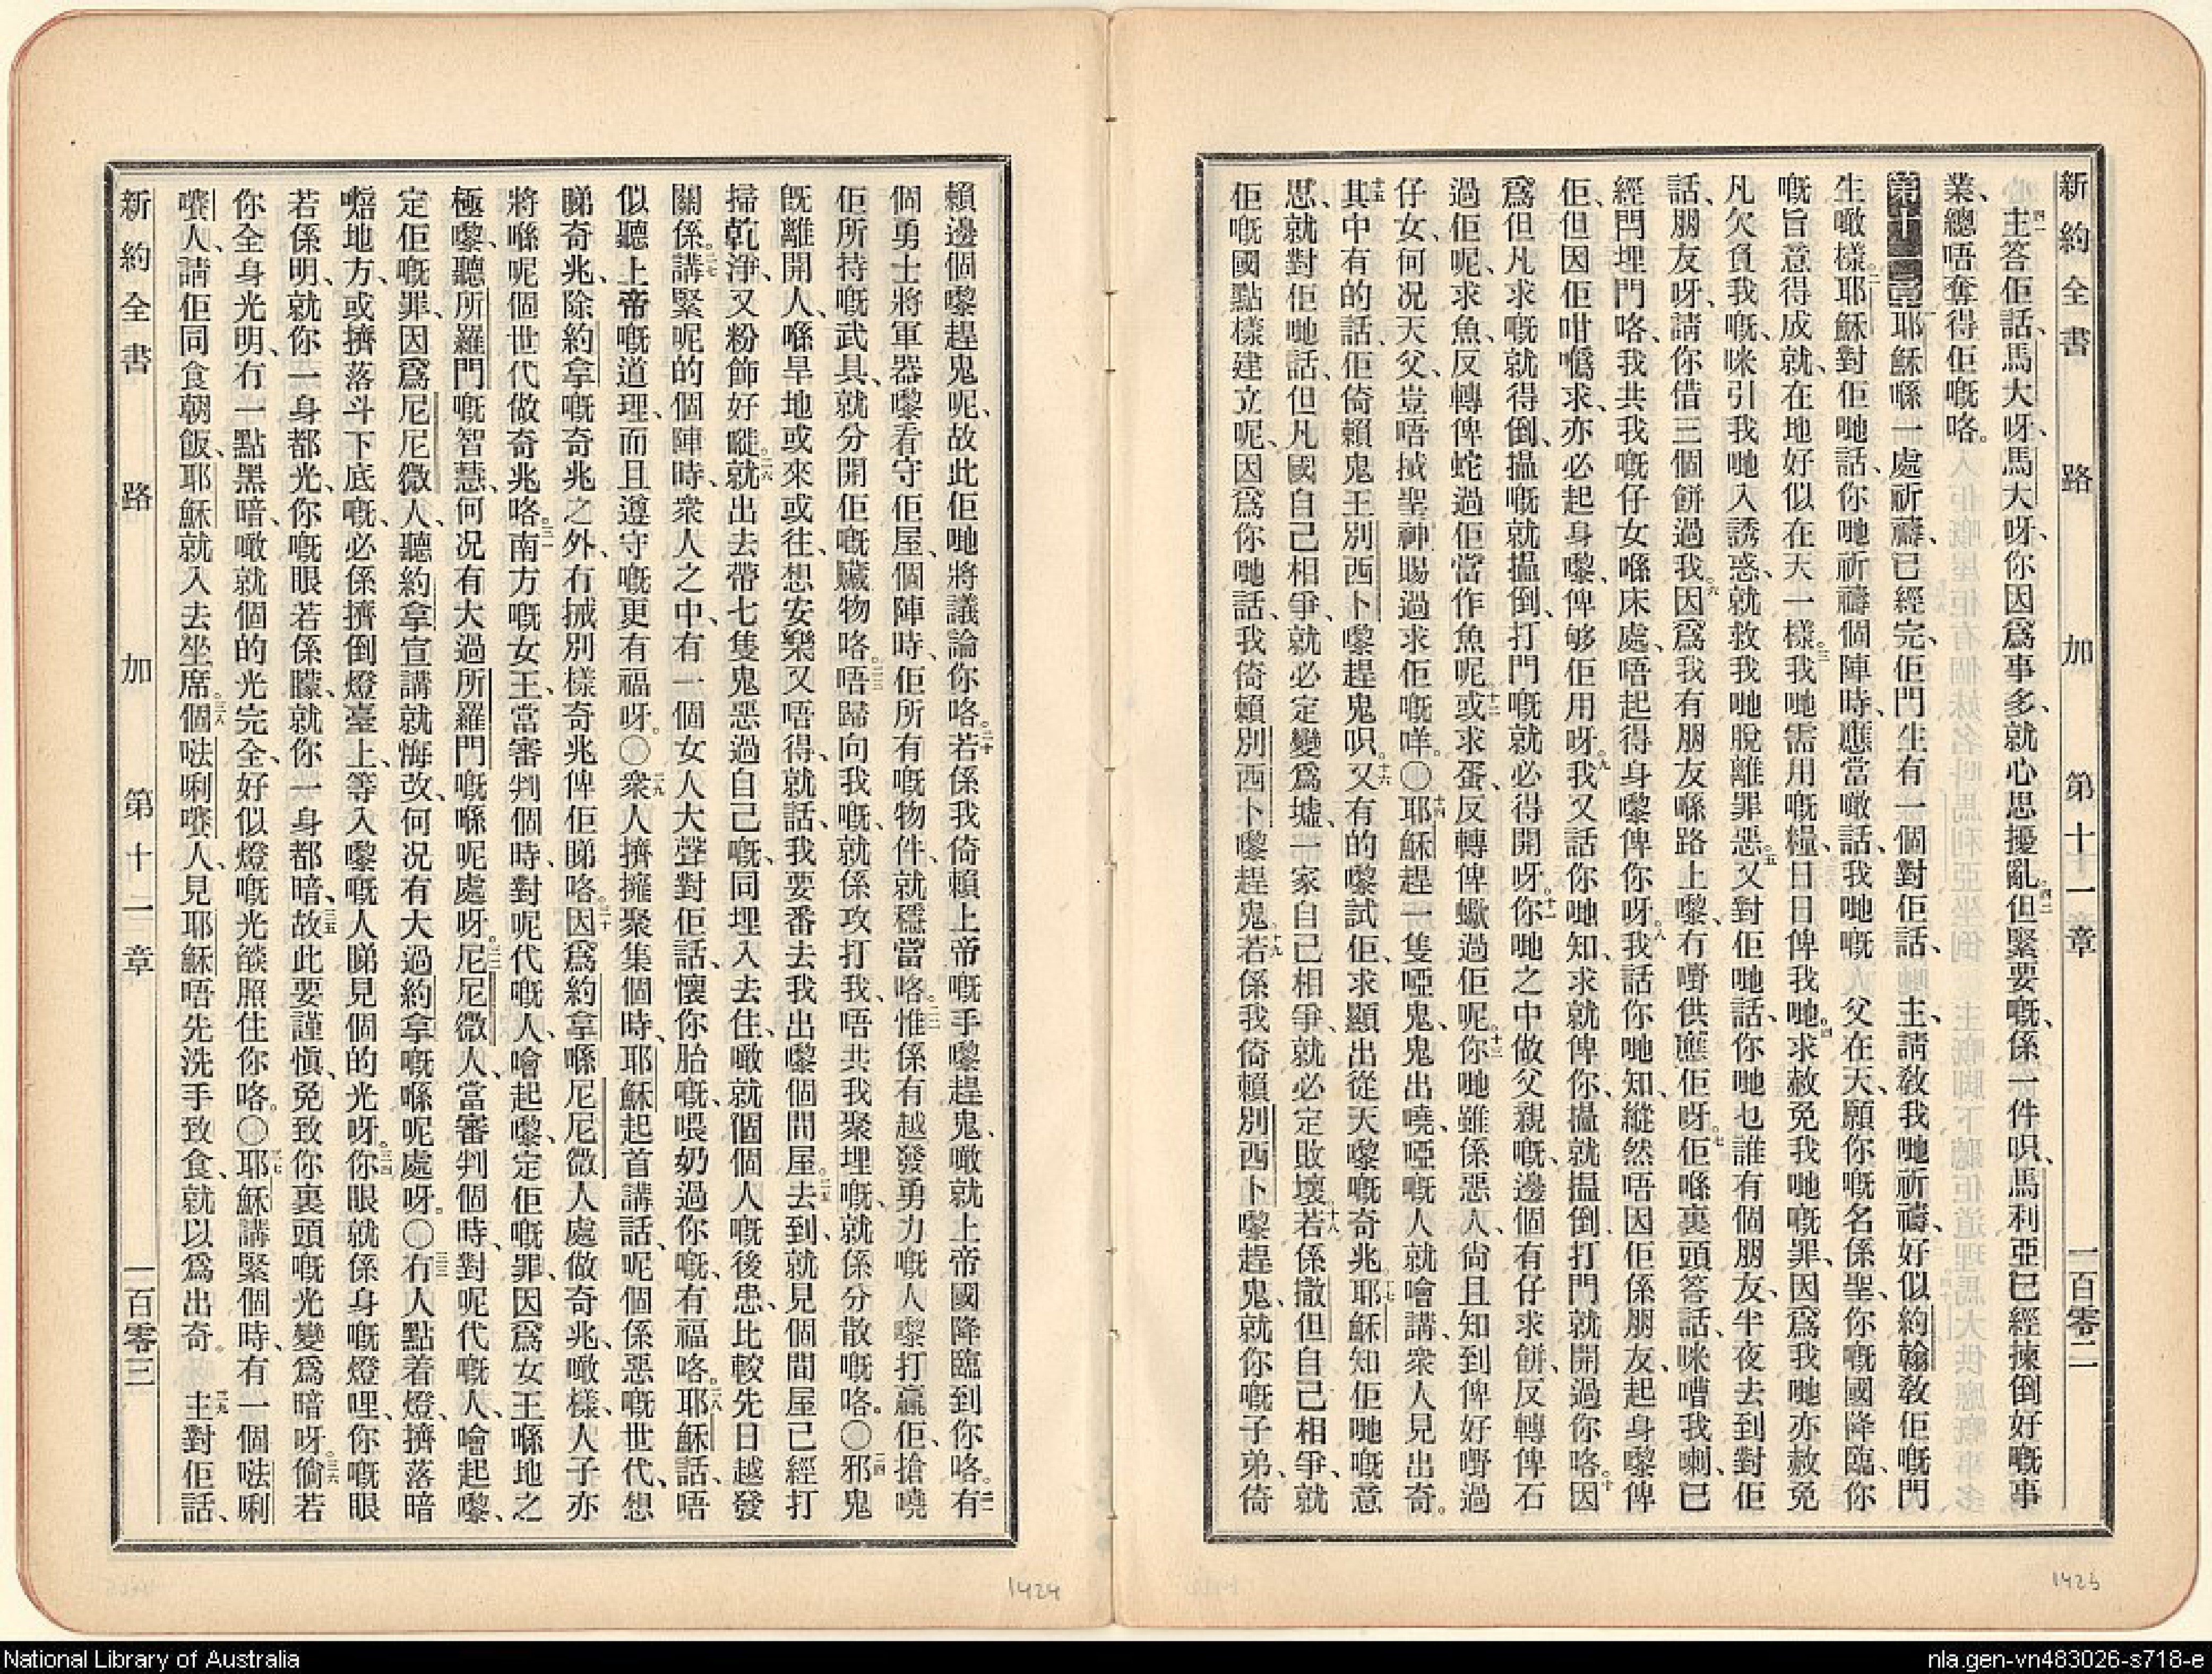 新約全書 路加 第十一章 一百零二
四一主答佢話、馬大呀、馬大呀、你因爲事多、就心思擾亂。四二但緊要嘅、係一件呮、馬利亞已經揀倒好嘅事
業、總唔奪得佢嘅咯。
第十一章耶穌喺一處祈禱、已經完、佢門生有一個對佢話、主、請教我哋祈禱、好似約翰教佢嘅門
生噉樣。二耶穌對佢哋話、你哋祈禱個陣時、應當噉話、我哋嘅父在天、願你嘅名係聖、你嘅國降臨、你
嘅旨意得成就、在地好似在天一樣。三我哋需用嘅糧、日日俾我哋。四求赦免我哋嘅罪、因爲我哋亦赦免
凡欠負我嘅、咪引我哋入誘惑、就救我哋脫離罪惡。五又對佢哋話、你哋乜誰有個朋友、半夜去到對佢
話、朋友呀、請你借三個餅過我。六因爲我有朋友喺路上嚟、冇嘢供應佢呀。七佢喺裏頭答話、咪嘈我喇、已
經閂埋門咯、我共我嘅仔女喺床處、唔起得身嚟俾你呀。八我話你哋知、縱然唔因佢係朋友、起身嚟俾
佢、但因佢咁噅求、亦必起身嚟、俾够佢用呀。九我又話你哋知、求就俾你、搵就搵倒、打門就開過你咯。十因
爲但凡求嘅就得倒、搵嘅就搵倒、打門嘅就必得開呀。十一你哋之中做父親嘅、邊個有仔求餅、反轉俾石
過佢呢、求魚、反轉俾蛇過佢當作魚呢。十二或求蛋、反轉俾蠍過佢呢。十三你哋雖係惡人、尙且知到俾好嘢過
仔女、何况天父、豈唔揻聖神賜過求佢嘅咩。〇十四耶穌趕一隻啞鬼、鬼出嘵、啞嘅人就噲講、衆人見出奇。
十五其中有的話、佢倚賴鬼王別西卜嚟趕鬼呮。十六又有的嚟試佢、求顯出從天嚟嘅奇兆。十七耶穌知佢哋嘅意
思、就對佢哋話、但凡國自己相爭、就必定變爲墟、一家自己相爭、就必定敗壞。十八若係撒但自己相爭、就
佢嘅國點樣建立呢、因爲你哋話、我倚賴別西卜嚟趕鬼。十九若係我倚賴別西卜嚟趕鬼、就你嘅子弟、倚
1423
賴邊個嚟趕鬼呢、故此佢哋將議論你咯。二十若係我倚賴上帝嘅手嚟趕鬼、噉就上帝國降臨到你咯。二一有
個勇士將軍器嚟看守佢屋、個陣時、佢所有嘅物件、就穩當咯。二二惟係有越發勇力嘅人嚟打贏佢、搶嘵
佢所恃嘅武具、就分開佢嘅贓物咯。二三唔歸向我嘅、就係攻打我、唔共我聚埋嘅、就係分散嘅咯。〇二四邪鬼
旣離開人、喺旱地或來或往、想安樂又唔得、就話、我要番去我出嚟個間屋。二五去到、就見個間屋已經打
掃乾淨、又粉飾好嘥。二六就出去帶七隻鬼惡過自己嘅、同埋入去住、噉就個個人嘅後患、比較先日越發
關係。二七講緊呢的個陣時、衆人之中、有一個女人大聲對佢話、懷你胎嘅、喂奶過你嘅、有福咯。二八耶穌話、唔
似聽上帝嘅道理、而且遵守嘅更有福呀。〇二九衆人擠擁聚集個時、耶穌起首講話、呢個係惡嘅世代、想
睇奇兆、除約拿嘅奇兆之外、冇揻別樣奇兆俾佢睇咯。三十因爲約拿喺尼尼微人處做奇兆、噉樣、人子亦
將喺呢個世代做奇兆咯。三一南方嘅女王、當審判個時、對呢代嘅人、噲起嚟、定佢嘅罪、因爲女王喺地之
極嚟、聽所羅門嘅智慧、何况有大過所羅門嘅喺呢處呀。三二尼尼微人、當審判個時、對呢代嘅人、噲起嚟、
定佢嘅罪、因爲尼尼微人、聽約拿宣講就悔改、何况有大過約拿嘅喺呢處呀。〇三三有人點着燈、擠落暗
地方、或擠落斗下底嘅、必係擠倒燈臺上、等入嚟嘅人睇見個的光呀。三四你眼就係身嘅燈哩、你嘅眼
若係明、就你一身都光、你嘅眼若係朦、就你一身都暗、三五故此要謹愼、免致你裏頭嘅光變爲暗呀。三六倘若
你全身光明、冇一點黑暗、噉就個的光完全、好似燈嘅光燄照住你咯。〇三七耶穌講緊個時、有一個㗶唎
嚌人、請佢同食朝飯、耶穌就入去坐席。三八個㗶唎嚌人、見耶穌唔先洗手致食、就以爲出奇。三九主對佢話、
新約全書 路加 第十一章 一百零三
1424
National Library of Australia
nla.gen-vn483026-s718-e